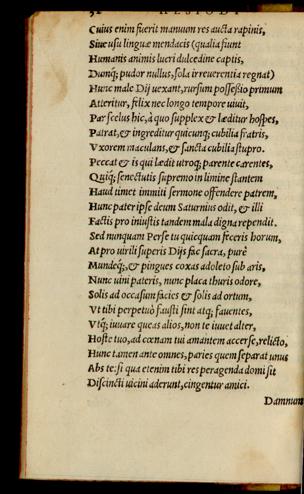 HESIODI
Cuius enim fuerit manuum res aucta rapinis,
Siue usu linguæ mendacis (qualia fiunt
Humanis animis lucri dulcedine captis,
Dunq; pudor nullus, sola irreuerentia regnat)
Hunc male Dij uexant, rursum possessio primum
Atteritur, felix nec longo tempore uiuit,
Par scelus hic, à quo supplex & læditur hospes,
Patrat, & ingreditur quicunq; cubilia fratris,
Vxorem maculans, & sancta cubilia stupro.
Peccat & is qui lædit utroq; parente carentes,
Quiq; senectutis supremo in limine stantem
Haud timet immiti sermone offendere patrem,
Hunc pater ipse deum Saturnius odit, & illi
Factis pro iniustis tandem mala digna rependit.
Sed nunquam Perse tu quicquam feceris horum,
At pro uirili superis Dijs fac sacra, purè
Mundeq;, & pingues coxas adoleto sub aris,
Nunc uini pateris, nunc placa thuris odore,
Solis ad occasum facies & solis ad ortum,
Vt tibi perpetuò fausti sint atq; fauentes,
Vtq; iuuare queas alios, non te iuuet alter,
Hoste tuo, ad cœnam tui amantem accerse, relicto,
Hunc tamen ante omnes, paries quem separat unus
Abs te: si qua etenim tibi res peragenda domi sit
Discincti uicini aderunt, cingentur amici.
Damnum